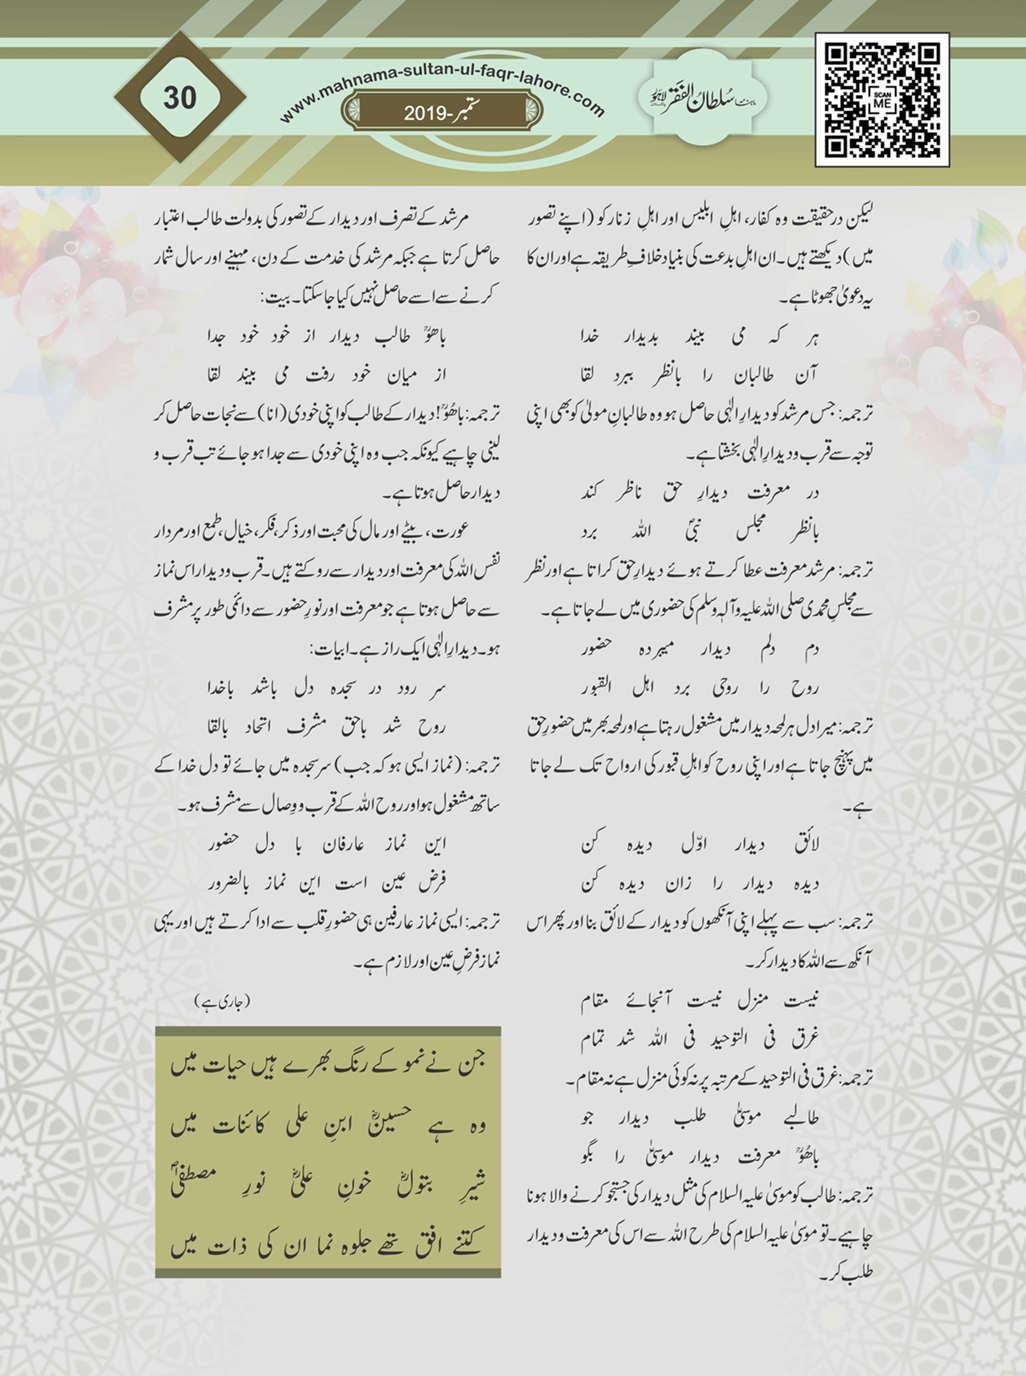 30
www.mahnama-sultan-ul-faqr-lahore.com
ستمبر-2019
ماہنامہ سُلطان الفقر لاہور
SCAN ME
لیکن درحقیقت وہ کفار، اہلِ ابلیس اور اہلِ زنار کو (اپنے تصور
میں) دیکھتے ہیں۔ ان اہلِ بدعت کی بنیاد خلافِ طریقہ ہے اور ان کا
یہ دعویٰ جھوٹا ہے۔
ہر کہ می بیند بدیدار خدا
آن طالبان را بانظر ببرد لقا
ترجمہ: جس مرشد کو دیدارِ الٰہی حاصل ہو وہ طالبانِ مولیٰ کو بھی اپنی
توجہ سے قرب و دیدارِ الٰہی بخشتا ہے۔
در معرفت دیدارِ حق ناظر کند
بانظر مجلس نبیؐ اللہ برد
ترجمہ: مرشد معرفت عطا کرتے ہوئے دیدارِ حق کراتا ہے اور نظر
سے مجلسِ محمدی صلی اللہ علیہ وآلہٖ وسلم کی حضوری میں لے جاتا ہے۔
دم دلم دیدار میبردہ حضور
روح را روحی برد اہل القبور
ترجمہ: میرا دل ہر لمحہ دیدار میں مشغول رہتا ہے اور لمحہ بھر میں حضورِ حق
میں پہنچ جاتا ہے اور اپنی روح کو اہلِ قبور کی ارواح تک لے جاتا
ہے۔
لائق دیدار اوّل دیدہ کن
دیدہ دیدار را زان دیدہ کن
ترجمہ: سب سے پہلے اپنی آنکھوں کو دیدار کے لائق بنا اور پھر اس
آنکھ سے اللہ کا دیدار کر۔
نیست منزل نیست آنجائے مقام
غرق فی التوحید فی اللہ شد تمام
ترجمہ: غرق فی التوحید کے مرتبہ پر نہ کوئی منزل ہے نہ مقام۔
طالبے موسیٰؑ طلب دیدار جو
باھُوؒ معرفت دیدار موسیٰؑ را بگو
ترجمہ: طالب کو موسیٰ علیہ السلام کی مثل دیدار کی جستجو کرنے والا ہونا
چاہیے۔ تو موسیٰ علیہ السلام کی طرح اللہ سے اس کی معرفت و دیدار
طلب کر۔
مرشد کے تصرف اور دیدار کے تصور کی بدولت طالب اعتبار
حاصل کرتا ہے جبکہ مرشد کی خدمت کے دن، مہینے اور سال شمار
کرنے سے اسے حاصل نہیں کیا جا سکتا۔ بیت:
باھُوؒ طالب دیدار از خود خود جدا
از میان خود رفت می بیند لقا
ترجمہ: باھُوؒ! دیدار کے طالب کو اپنی خودی (انا) سے نجات حاصل کر
لینی چاہیے کیونکہ جب وہ اپنی خودی سے جدا ہو جائے تب قرب و
دیدار حاصل ہوتا ہے۔
عورت، بیٹے اور مال کی محبت اور ذکر، فکر، خیال، طمع اور مردار
نفس اللہ کی معرفت اور دیدار سے روکتے ہیں۔ قرب و دیدار اس نماز
سے حاصل ہوتا ہے جو معرفت اور نورِ حضور سے دائمی طور پر مشرف
ہو۔ دیدارِ الٰہی ایک راز ہے۔ ابیات:
سر رود در سجدہ دل باشد باخدا
روح شد باحق مشرف اتحاد بالقا
ترجمہ: (نماز ایسی ہو کہ جب) سر سجدہ میں جائے تو دل خدا کے
ساتھ مشغول ہو اور روح اللہ کے قرب و وصال سے مشرف ہو۔
این نماز عارفان با دل حضور
فرض عین است این نماز بالضرور
ترجمہ: ایسی نماز عارفین ہی حضورِ قلب سے ادا کرتے ہیں اور یہی
نماز فرضِ عین اور لازم ہے۔
(جاری ہے)
جن نے نمو کے رنگ بھرے ہیں حیات میں
وہ ہے حسینؓ ابنِ علی کائنات میں
شیرِ بتولؓ خونِ علیؓ نورِ مصطفیؐ
کتنے افق تھے جلوہ نما ان کی ذات میں